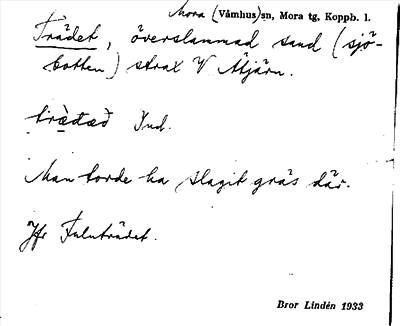 Mora (Våmhus)sn, Mora tg, Koppb. l.
Trädet, överslammad sand (sjö-
botten) strax V Åtjärn.
träd Ind.
Man torde ha slagit gräs där.
Jfr Fuluträdet.
Bror Lindén 1933